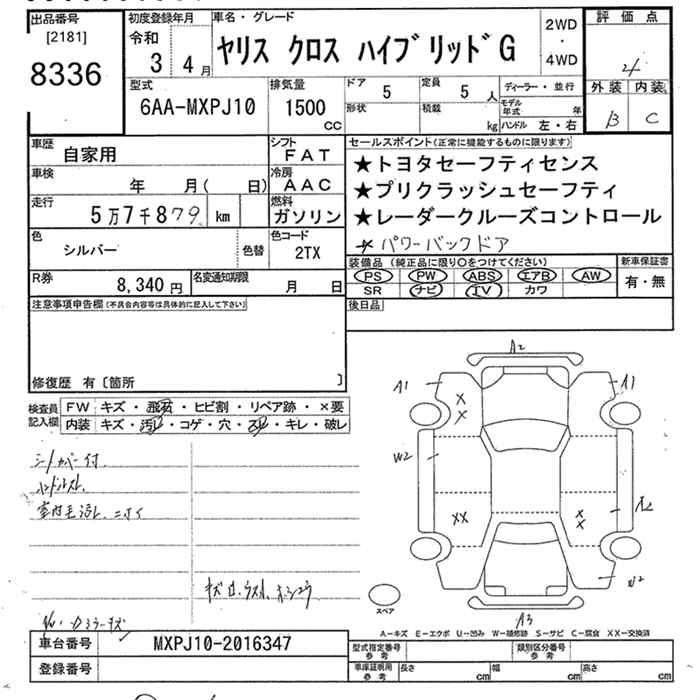 出品番号
[2181]
8336
初度登録年月
令和
3 4月
車名・グレード
ヤリス クロス ハイブリッドG
2WD
・
4WD
評価点
4
外装 内装
B C
型式
6AA-MXPJ10
排気量
1500
CC
ドア
5
定員
5人
ディーラー・並行
形状
積載
kg
モデル年式 年
ハンドル 左・右
車歴
自家用
シフト
FAT
車検
年 月( 日)
冷房
AAC
走行
5万7千879 km
燃料
ガソリン
色
シルバー
色替
色コード
2TX
R券
8,340円
名変通知期限
月 日
セールスポイント(正常に機能するものに限ります)
★トヨタセーフティセンス
★プリクラッシュセーフティ
★レーダークルーズコントロール
★パワーバックドア
装備品(純正品に限り○をつけてください)
PS PW ABS エアB AW
SR ナビ TV カワ
新車保証書
有・無
後日品
注意事項申告欄(不具合内容等は具体的に記入して下さい)
修復歴 有〔箇所 〕
検査員
記入欄
FW キズ・飛石・ヒビ割・リペア跡・×要
内装 キズ・汚レ・コゲ・穴・スレ・キレ・破レ
シートカバー付
ハンドルスレ
室内毛汚レ、ニオイ
A2
A1
A1
X
X
W2
A2
XX
X
X
W2
A3
スペア
A−キズ E−エクボ U−凹み W−補修跡 S−サビ C−腐食 XX−交換済
車台番号
MXPJ10-2016347
登録番号
型式指定番号
参考
類別区分番号
参考
車庫証明用
参考
長さ cm
幅 cm
高さ cm